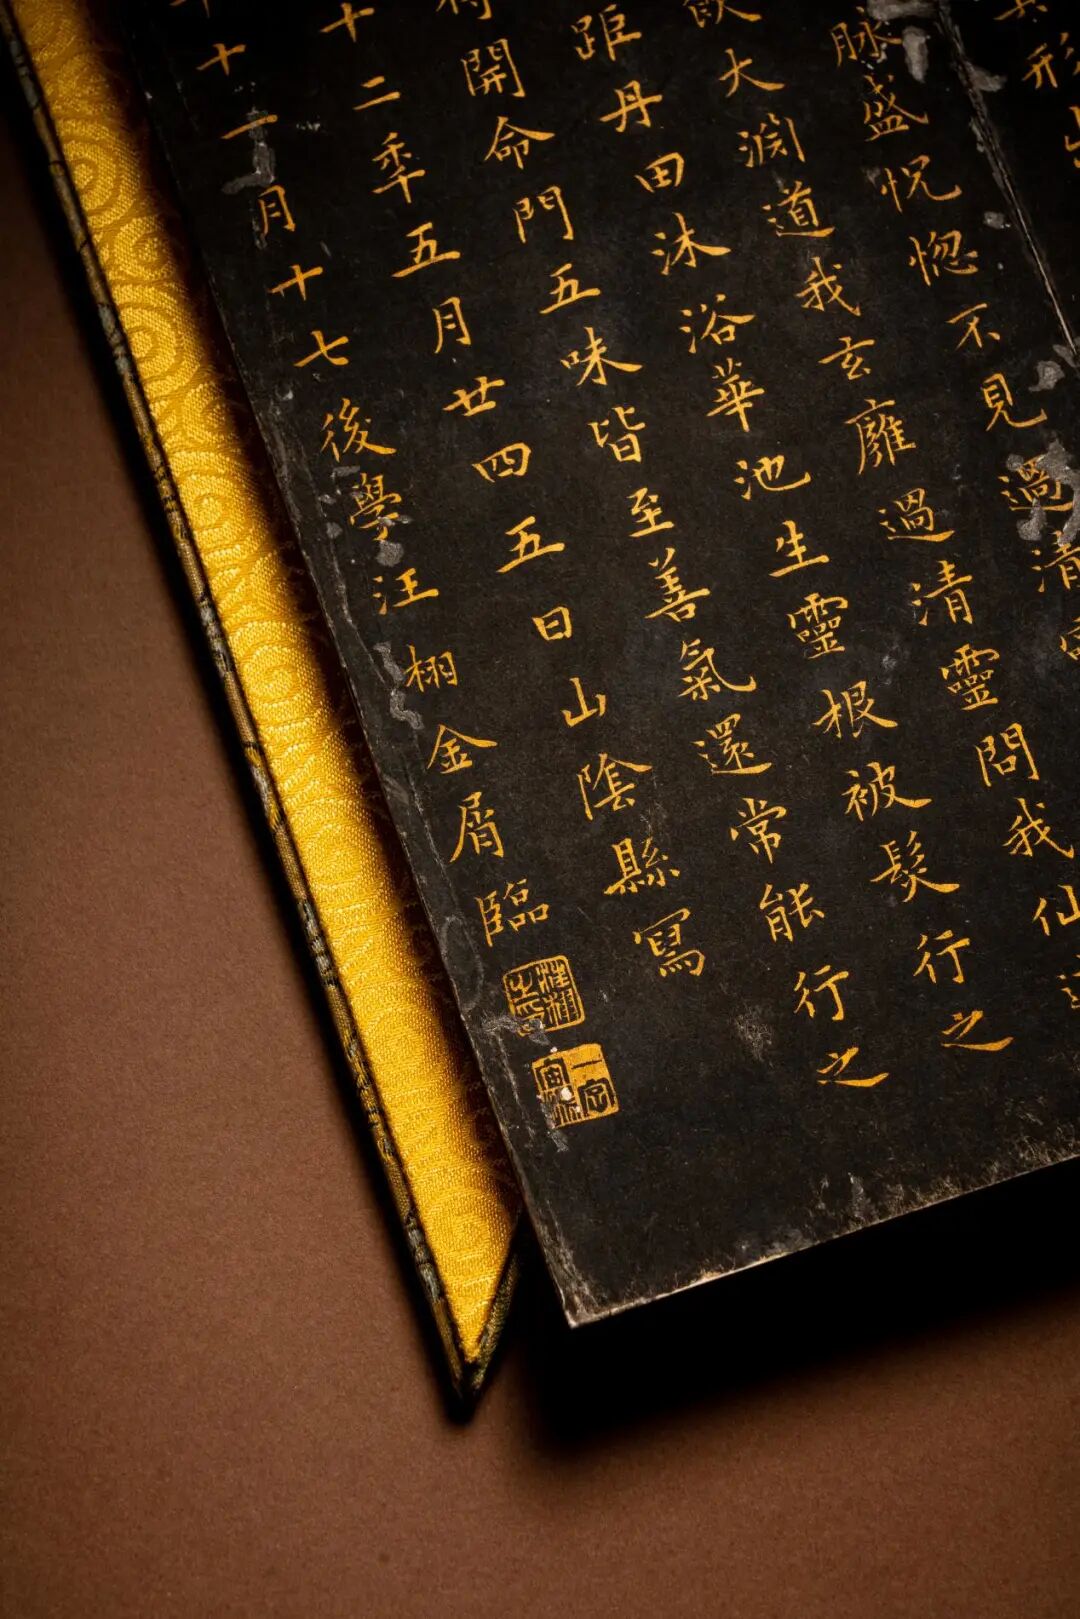 形
脉盛怳惚不見過清
飲大渕道我玄廱過清靈問我仙
距丹田沐浴華池生靈根被髮行之
開命門五味皆至善氣還常能行之
十二秊五月廿四五日山陰縣寫
十一月十七後學汪栩金屑臨